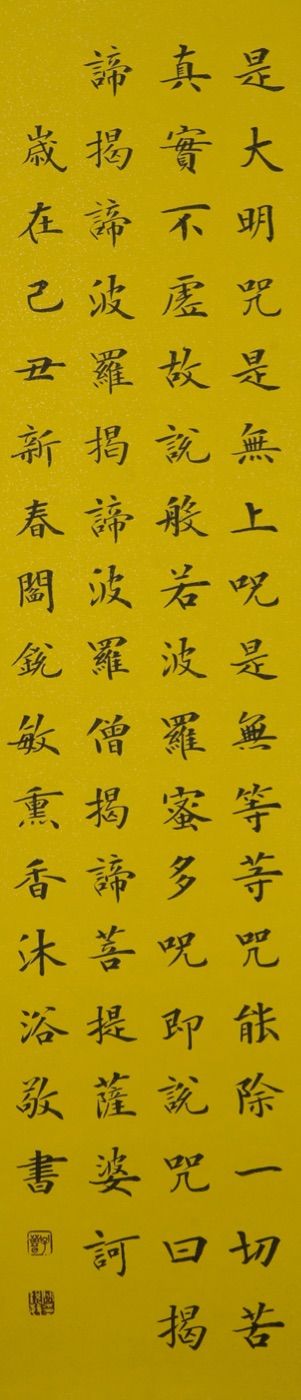 是大明咒是無上咒是無等等咒能除一切苦
真實不虛故說般若波羅蜜多咒即說咒曰揭
諦揭諦波羅揭諦波羅僧揭諦菩提薩婆訶
歲在己丑新春閻銳敏熏香沐浴敬書